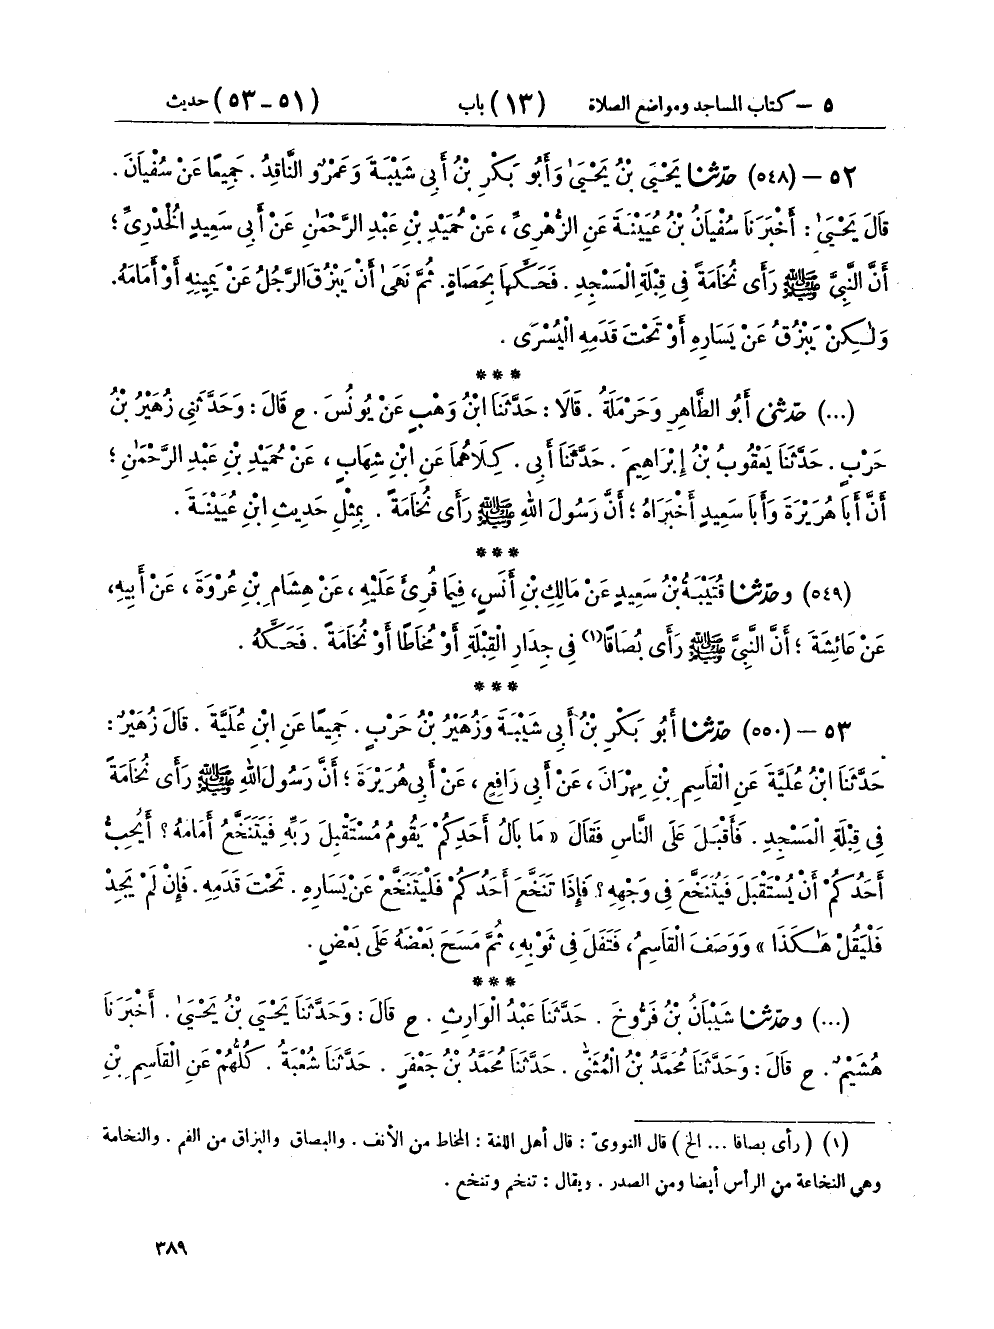 ٥ – كتاب المساجد ومواضع الصلاة (١٣) باب (٥١-٥٣) حديث
٥٢ – (٥٤٨) حدّثنا يَحْيَىٰ بْنُ يَحْيَىٰ وَأَبُو بَكْرِ بْنُ أَبِي شَيْبَةَ وَعَمْرٌو النَّاقِدُ . جَمِيعًا عَنْ سُفْيَانَ .
قَالَ يَحْيَىٰ : أَخْبَرَنَا سُفْيَانُ بْنُ عُيَيْنَةَ عَنِ الزُّهْرِيِّ ، عَنْ حُمَيْدِ بْنِ عَبْدِ الرَّحْمَٰنِ عَنْ أَبِي سَعِيدٍ الْخُدْرِيِّ ؛
أَنَّ النَّبِيَّ ﷺ رَأَى نُخَامَةً فِي قِبْلَةِ الْمَسْجِدِ . فَحَكَّهَا بِحَصَاةٍ . ثُمَّ نَهَىٰ أَنْ يَبْزُقَ الرَّجُلُ عَنْ يَمِينِهِ أَوْ أَمَامَهُ .
وَلَٰكِنْ يَبْزُقُ عَنْ يَسَارِهِ أَوْ تَحْتَ قَدَمِهِ الْيُسْرَى .
***
(...) حدّثني أَبُو الطَّاهِرِ وَحَرْمَلَةُ . قَالَا : حَدَّثَنَا ابْنُ وَهْبٍ عَنْ يُونُسَ . ح قَالَ : وَحَدَّثَنِي زُهَيْرُ بْنُ
حَرْبٍ . حَدَّثَنَا يَعْقُوبُ بْنُ إِبْرَاهِيمَ . حَدَّثَنَا أَبِي . كِلَاهُمَا عَنِ ابْنِ شِهَابٍ ، عَنْ حُمَيْدِ بْنِ عَبْدِ الرَّحْمَٰنِ ؛
أَنَّ أَبَا هُرَيْرَةَ وَأَبَا سَعِيدٍ أَخْبَرَاهُ ؛ أَنَّ رَسُولَ اللهِ ﷺ رَأَى نُخَامَةً . بِمِثْلِ حَدِيثِ ابْنِ عُيَيْنَةَ .
***
(٥٤٩) وحدّثنا قُتَيْبَةُ بْنُ سَعِيدٍ عَنْ مَالِكِ بْنِ أَنَسٍ، فِيمَا قُرِئَ عَلَيْهِ ، عَنْ هِشَامِ بْنِ عُرْوَةَ ، عَنْ أَبِيهِ،
عَنْ عَائِشَةَ ؛ أَنَّ النَّبِيَّ ﷺ رَأَى بُصَاقًا(١) فِي جِدَارِ الْقِبْلَةِ أَوْ مُخَاطًا أَوْ نُخَامَةً . فَحَكَّهُ .
***
٥٣ – (٥٥٠) حدّثنا أَبُو بَكْرِ بْنُ أَبِي شَيْبَةَ وَزُهَيْرُ بْنُ حَرْبٍ . جَمِيعًا عَنِ ابْنِ عُلَيَّةَ . قَالَ زُهَيْرٌ :
حَدَّثَنَا ابْنُ عُلَيَّةَ عَنِ الْقَاسِمِ بْنِ مِهْرَانَ ، عَنْ أَبِي رَافِعٍ ، عَنْ أَبِي هُرَيْرَةَ ؛ أَنَّ رَسُولَ اللهِ ﷺ رَأَى نُخَامَةً
فِي قِبْلَةِ الْمَسْجِدِ . فَأَقْبَلَ عَلَى النَّاسِ فَقَالَ « مَا بَالُ أَحَدِكُمْ يَقُومُ مُسْتَقْبِلَ رَبِّهِ فَيَتَنَخَّعُ أَمَامَهُ ؟ أَيُحِبُّ
أَحَدُكُمْ أَنْ يُسْتَقْبَلَ فَيُتَنَخَّعَ فِي وَجْهِهِ ؟ فَإِذَا تَنَخَّعَ أَحَدُكُمْ فَلْيَتَنَخَّعْ عَنْ يَسَارِهِ . تَحْتَ قَدَمِهِ . فَإِنْ لَمْ يَجِدْ
فَلْيَقُلْ هَٰكَذَا » وَوَصَفَ الْقَاسِمُ، فَتَفَلَ فِي ثَوْبِهِ، ثُمَّ مَسَحَ بَعْضَهُ عَلَىٰ بَعْضٍ .
***
(...) وحدّثنا شَيْبَانُ بْنُ فَرُّوخَ . حَدَّثَنَا عَبْدُ الْوَارِثِ . ح قَالَ : وَحَدَّثَنَا يَحْيَىٰ بْنُ يَحْيَىٰ . أَخْبَرَنَا
هُشَيْمٌ . ح قَالَ : وَحَدَّثَنَا مُحَمَّدُ بْنُ الْمُثَنَّىٰ . حَدَّثَنَا مُحَمَّدُ بْنُ جَعْفَرٍ . حَدَّثَنَا شُعْبَةُ . كُلُّهُمْ عَنِ الْقَاسِمِ بْنِ
(١) (رأى بصاقا ... الخ) قال النوويّ : قال أهل اللغة : المخاط من الأنف . والبصاق والبزاق من الفم . والنخامة
وهي النخاعة من الرأس أيضا ومن الصدر . ويقال : تنخم وتنخع .
٣٨٩